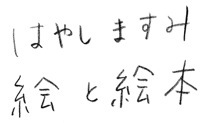 はやし ますみ
絵と絵本